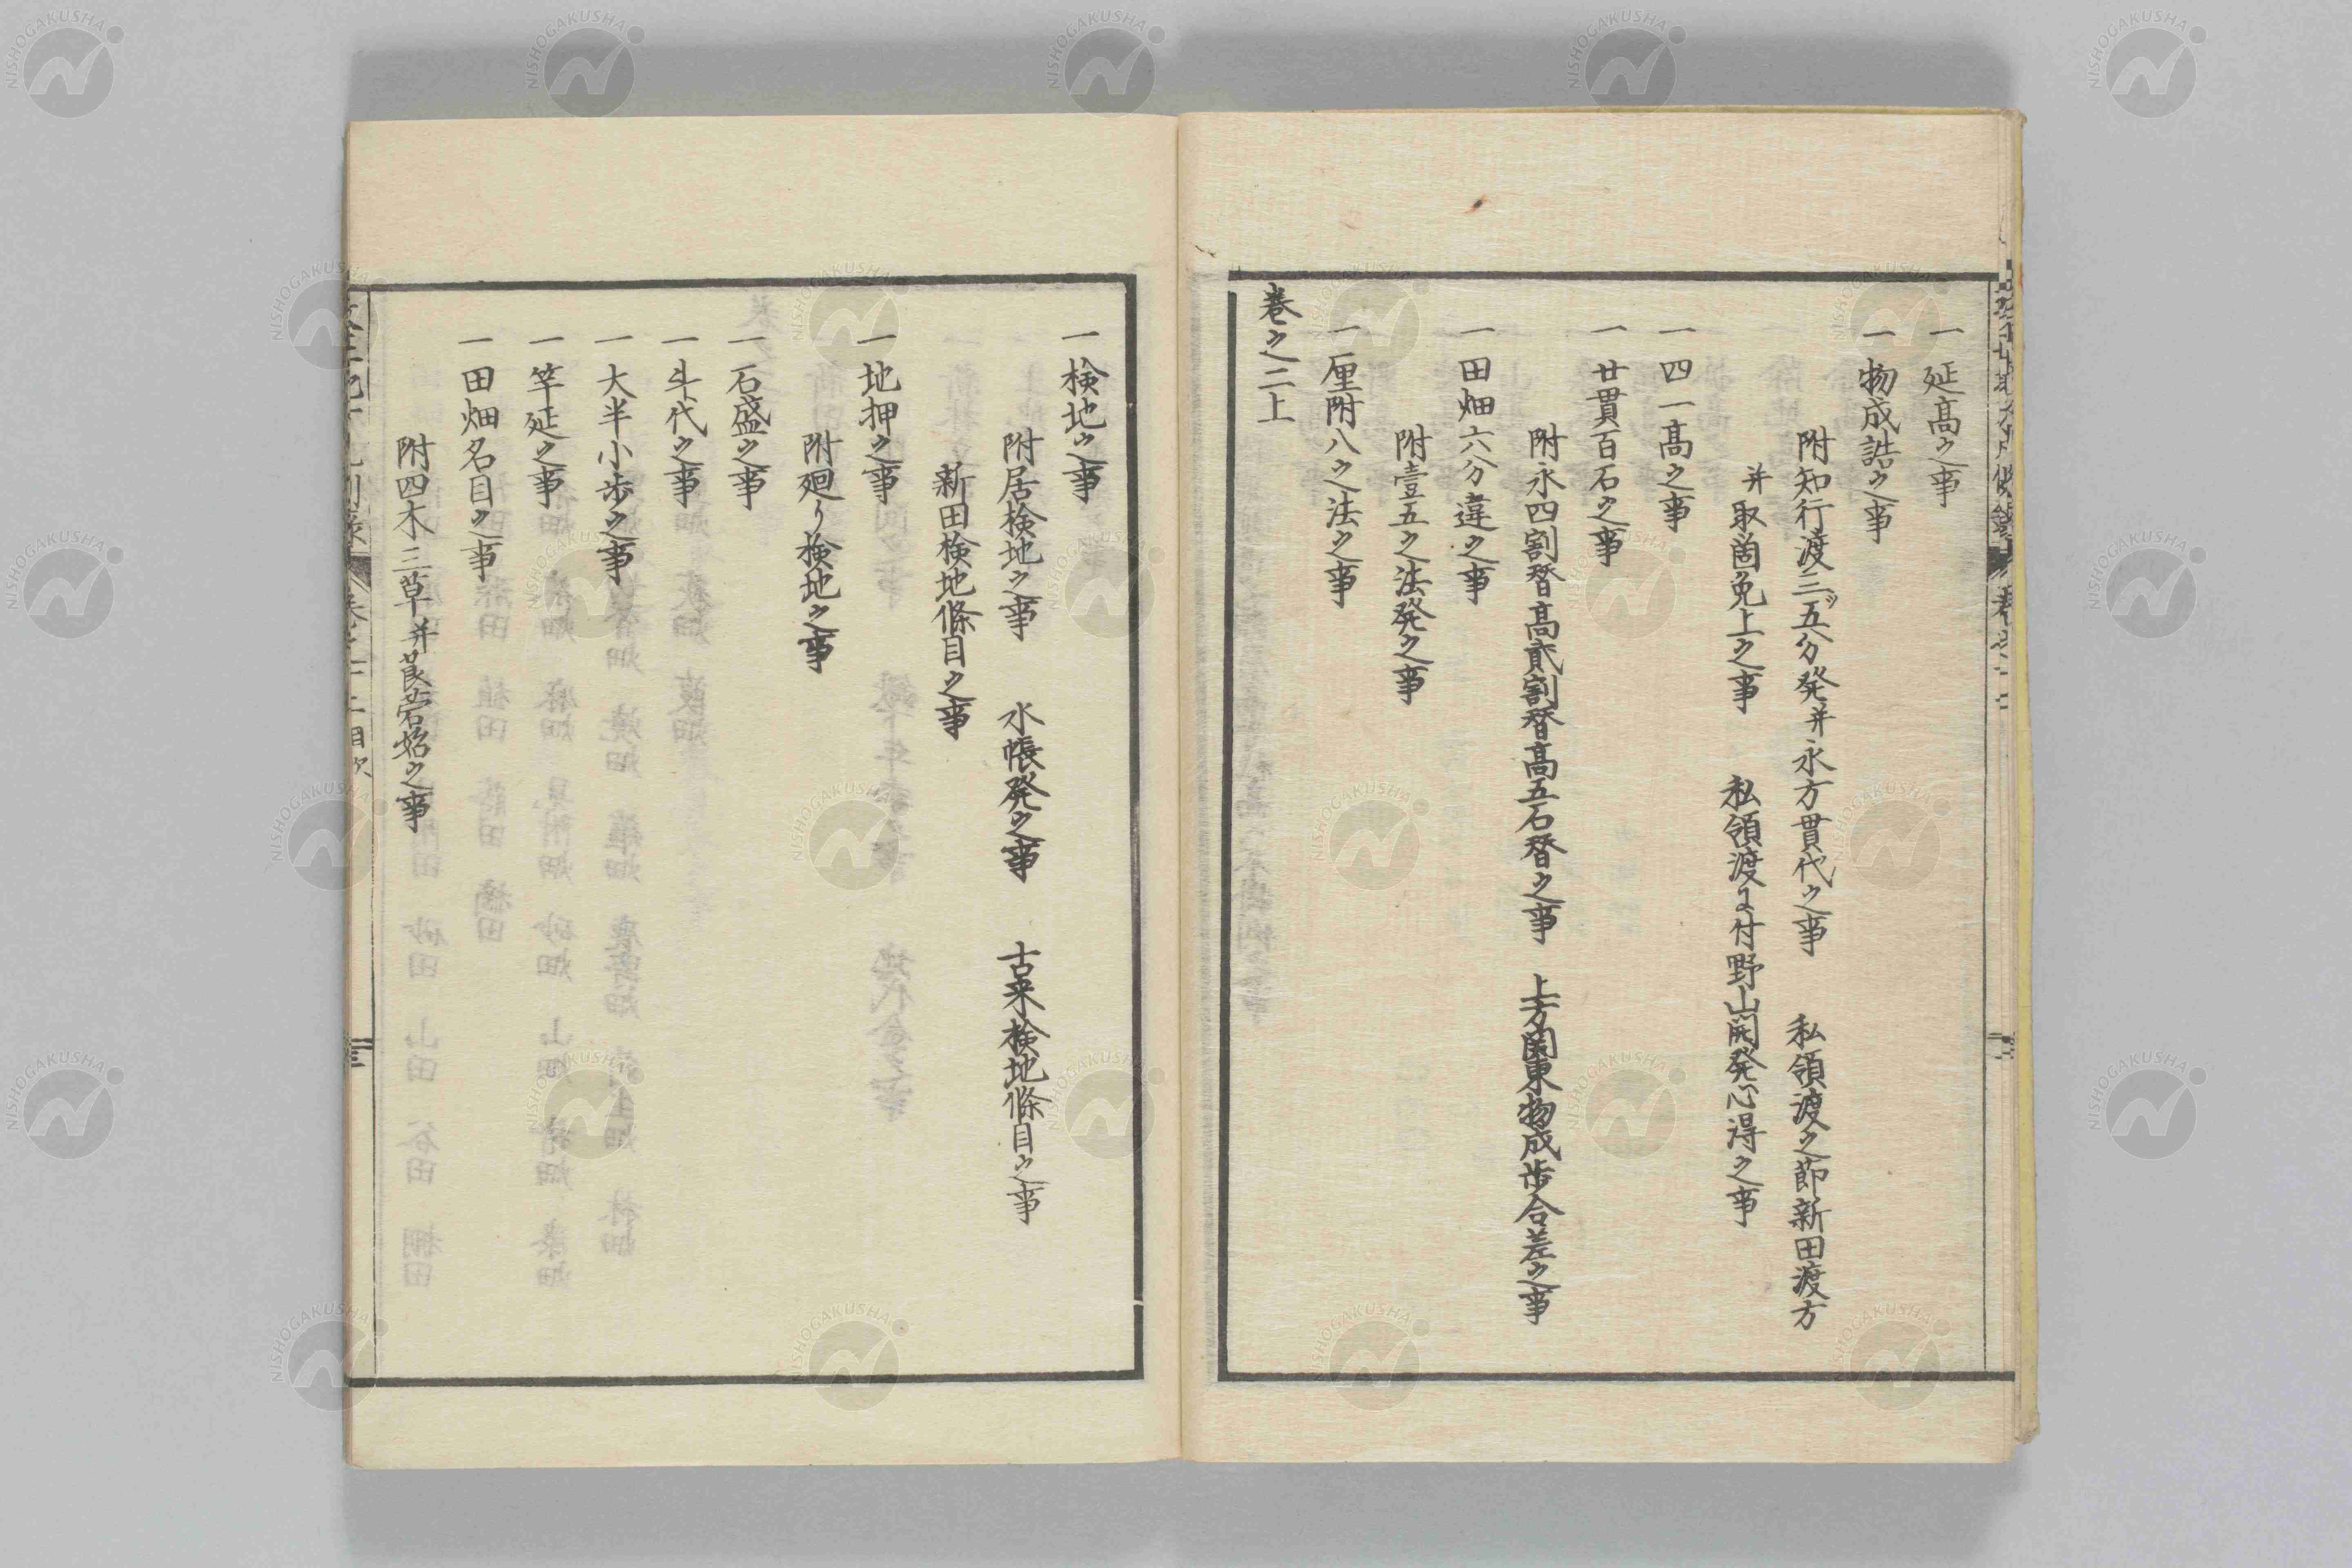 一延高之事
一物成詰之事
附知行渡三ツ五分発并永方貫代之事　私領渡之節新田渡方
并取箇免上之事　私領渡ニ付野山開発心得之事
一四一高之事
一廿貫百石之事
附永四割替高貳割替高五石替之事　上方関東物成歩合差之事
一田畑六分違之事
附壹五之法発之事
一厘附八之法之事
巻之二上
一検地之事
附居検地之事　水帳発之事　古来検地條目之事
新田検地條目之事
一地押之事
附廻り検地之事
一石盛之事
一斗代之事
一大半小歩之事
一竿延之事
一田畑名目之事
附四木三草并莨菪始之事
NISHOGAKUSHA